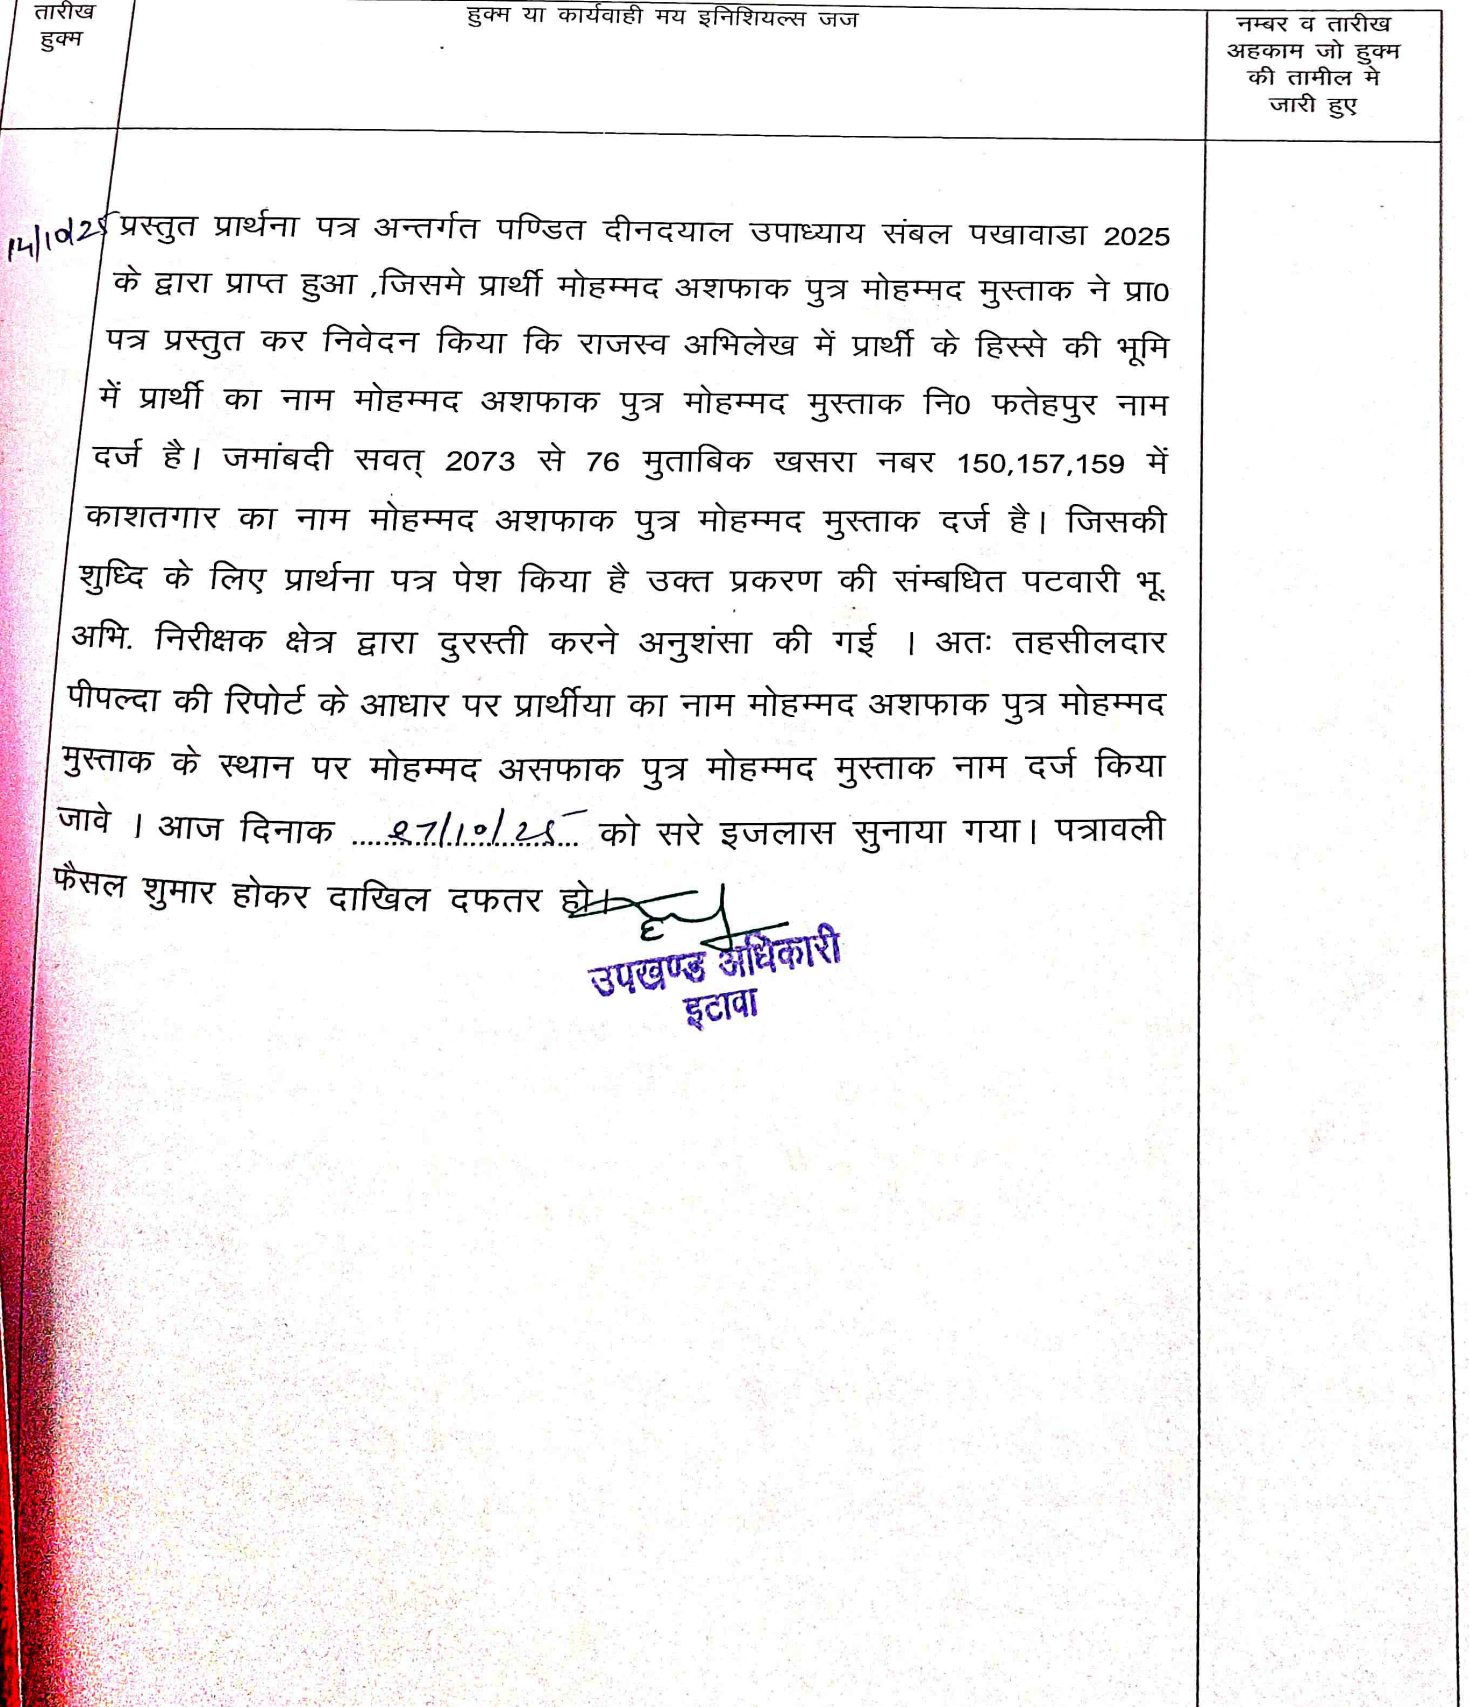 तारीख
हुक्म
हुक्म या कार्यवाही मय इनिशियल्स जज
नम्बर व तारीख
अहकाम जो हुक्म
की तामील मे
जारी हुए
14/10/25
प्रस्तुत प्रार्थना पत्र अन्तर्गत पण्डित दीनदयाल उपाध्याय संबल पखावाडा 2025
के द्वारा प्राप्त हुआ ,जिसमे प्रार्थी मोहम्मद अशफाक पुत्र मोहम्मद मुस्ताक ने प्रा0
पत्र प्रस्तुत कर निवेदन किया कि राजस्व अभिलेख में प्रार्थी के हिस्से की भूमि
में प्रार्थी का नाम मोहम्मद अशफाक पुत्र मोहम्मद मुस्ताक नि0 फतेहपुर नाम
दर्ज है। जमांबदी सवत् 2073 से 76 मुताबिक खसरा नबर 150,157,159 में
काशतगार का नाम मोहम्मद अशफाक पुत्र मोहम्मद मुस्ताक दर्ज है। जिसकी
शुध्दि के लिए प्रार्थना पत्र पेश किया है उक्त प्रकरण की संम्बधित पटवारी भू.
अभि. निरीक्षक क्षेत्र द्वारा दुरस्ती करने अनुशंसा की गई । अतः तहसीलदार
पीपल्दा की रिपोर्ट के आधार पर प्रार्थीया का नाम मोहम्मद अशफाक पुत्र मोहम्मद
मुस्ताक के स्थान पर मोहम्मद असफाक पुत्र मोहम्मद मुस्ताक नाम दर्ज किया
जावे । आज दिनाक 27/10/25 को सरे इजलास सुनाया गया। पत्रावली
फैसल शुमार होकर दाखिल दफतर हो।
उपखण्ड अधिकारी
इटावा